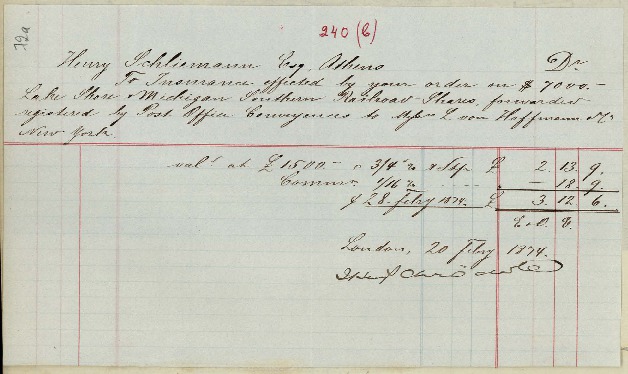 72a
240 (6)
Henry Schliemann Esq. Athens Dr
To Insurance effected by your order on $ 7000.-
Lake Shore & Michigan Southern Railroad Shares forwarded
registered by Post Office Conveyances to Messrs L. von Hoffmann & Co
New York.
val'd at £1500.- 3/4 % & Stp £ 2. 13. 9.
Commn. 1/16 % - 18. 9.
28 Febry 1874. £ 3. 12. 6.
E. & O. E.
London, 20 Febry 1874.